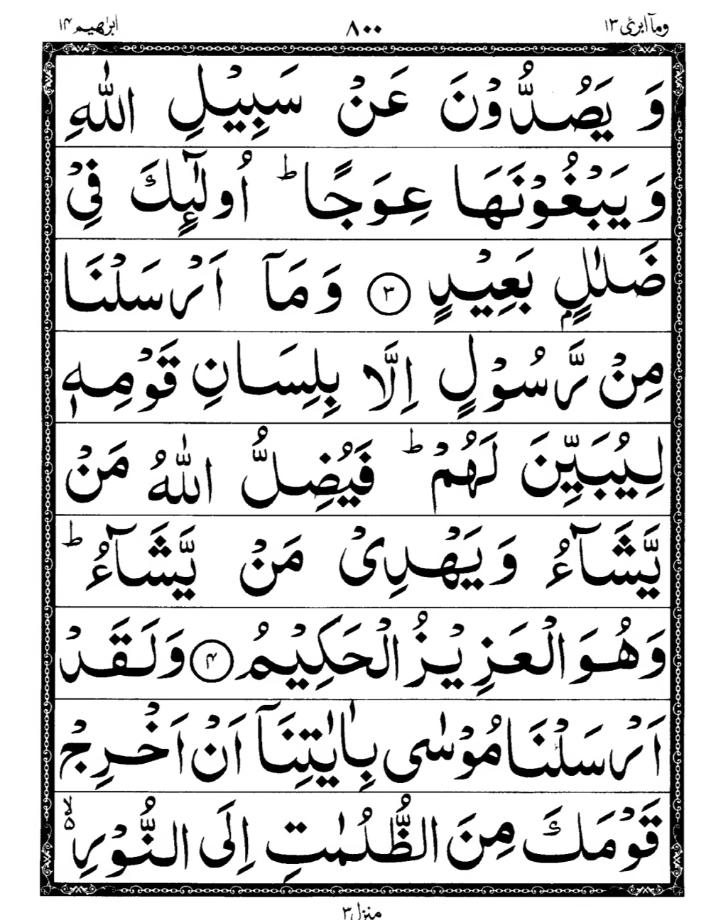 ومآ ابرئ ١٣ ٨٠٠ ابرٰهيم ١٤
وَ يَصُدُّوْنَ عَنْ سَبِيْلِ اللّٰهِ
وَ يَبْغُوْنَهَا عِوَجًا ؕ اُولٰٓئِكَ فِيْ
ضَلٰلٍۭ بَعِيْدٍ ﴿٣﴾ وَ مَاۤ اَرْسَلْنَا
مِنْ رَّسُوْلٍ اِلَّا بِلِسَانِ قَوْمِهٖ
لِيُبَيِّنَ لَهُمْ ؕ فَيُضِلُّ اللّٰهُ مَنْ
يَّشَآءُ وَيَهْدِيْ مَنْ يَّشَآءُ ؕ
وَهُوَ الْعَزِيْزُ الْحَكِيْمُ ﴿۴﴾ وَلَقَدْ
اَرْسَلْنَا مُوْسٰى بِاٰيٰتِنَاۤ اَنْ اَخْرِجْ
قَوْمَكَ مِنَ الظُّلُمٰتِ اِلَى النُّوْرِ ۙ۬
منزل ٣